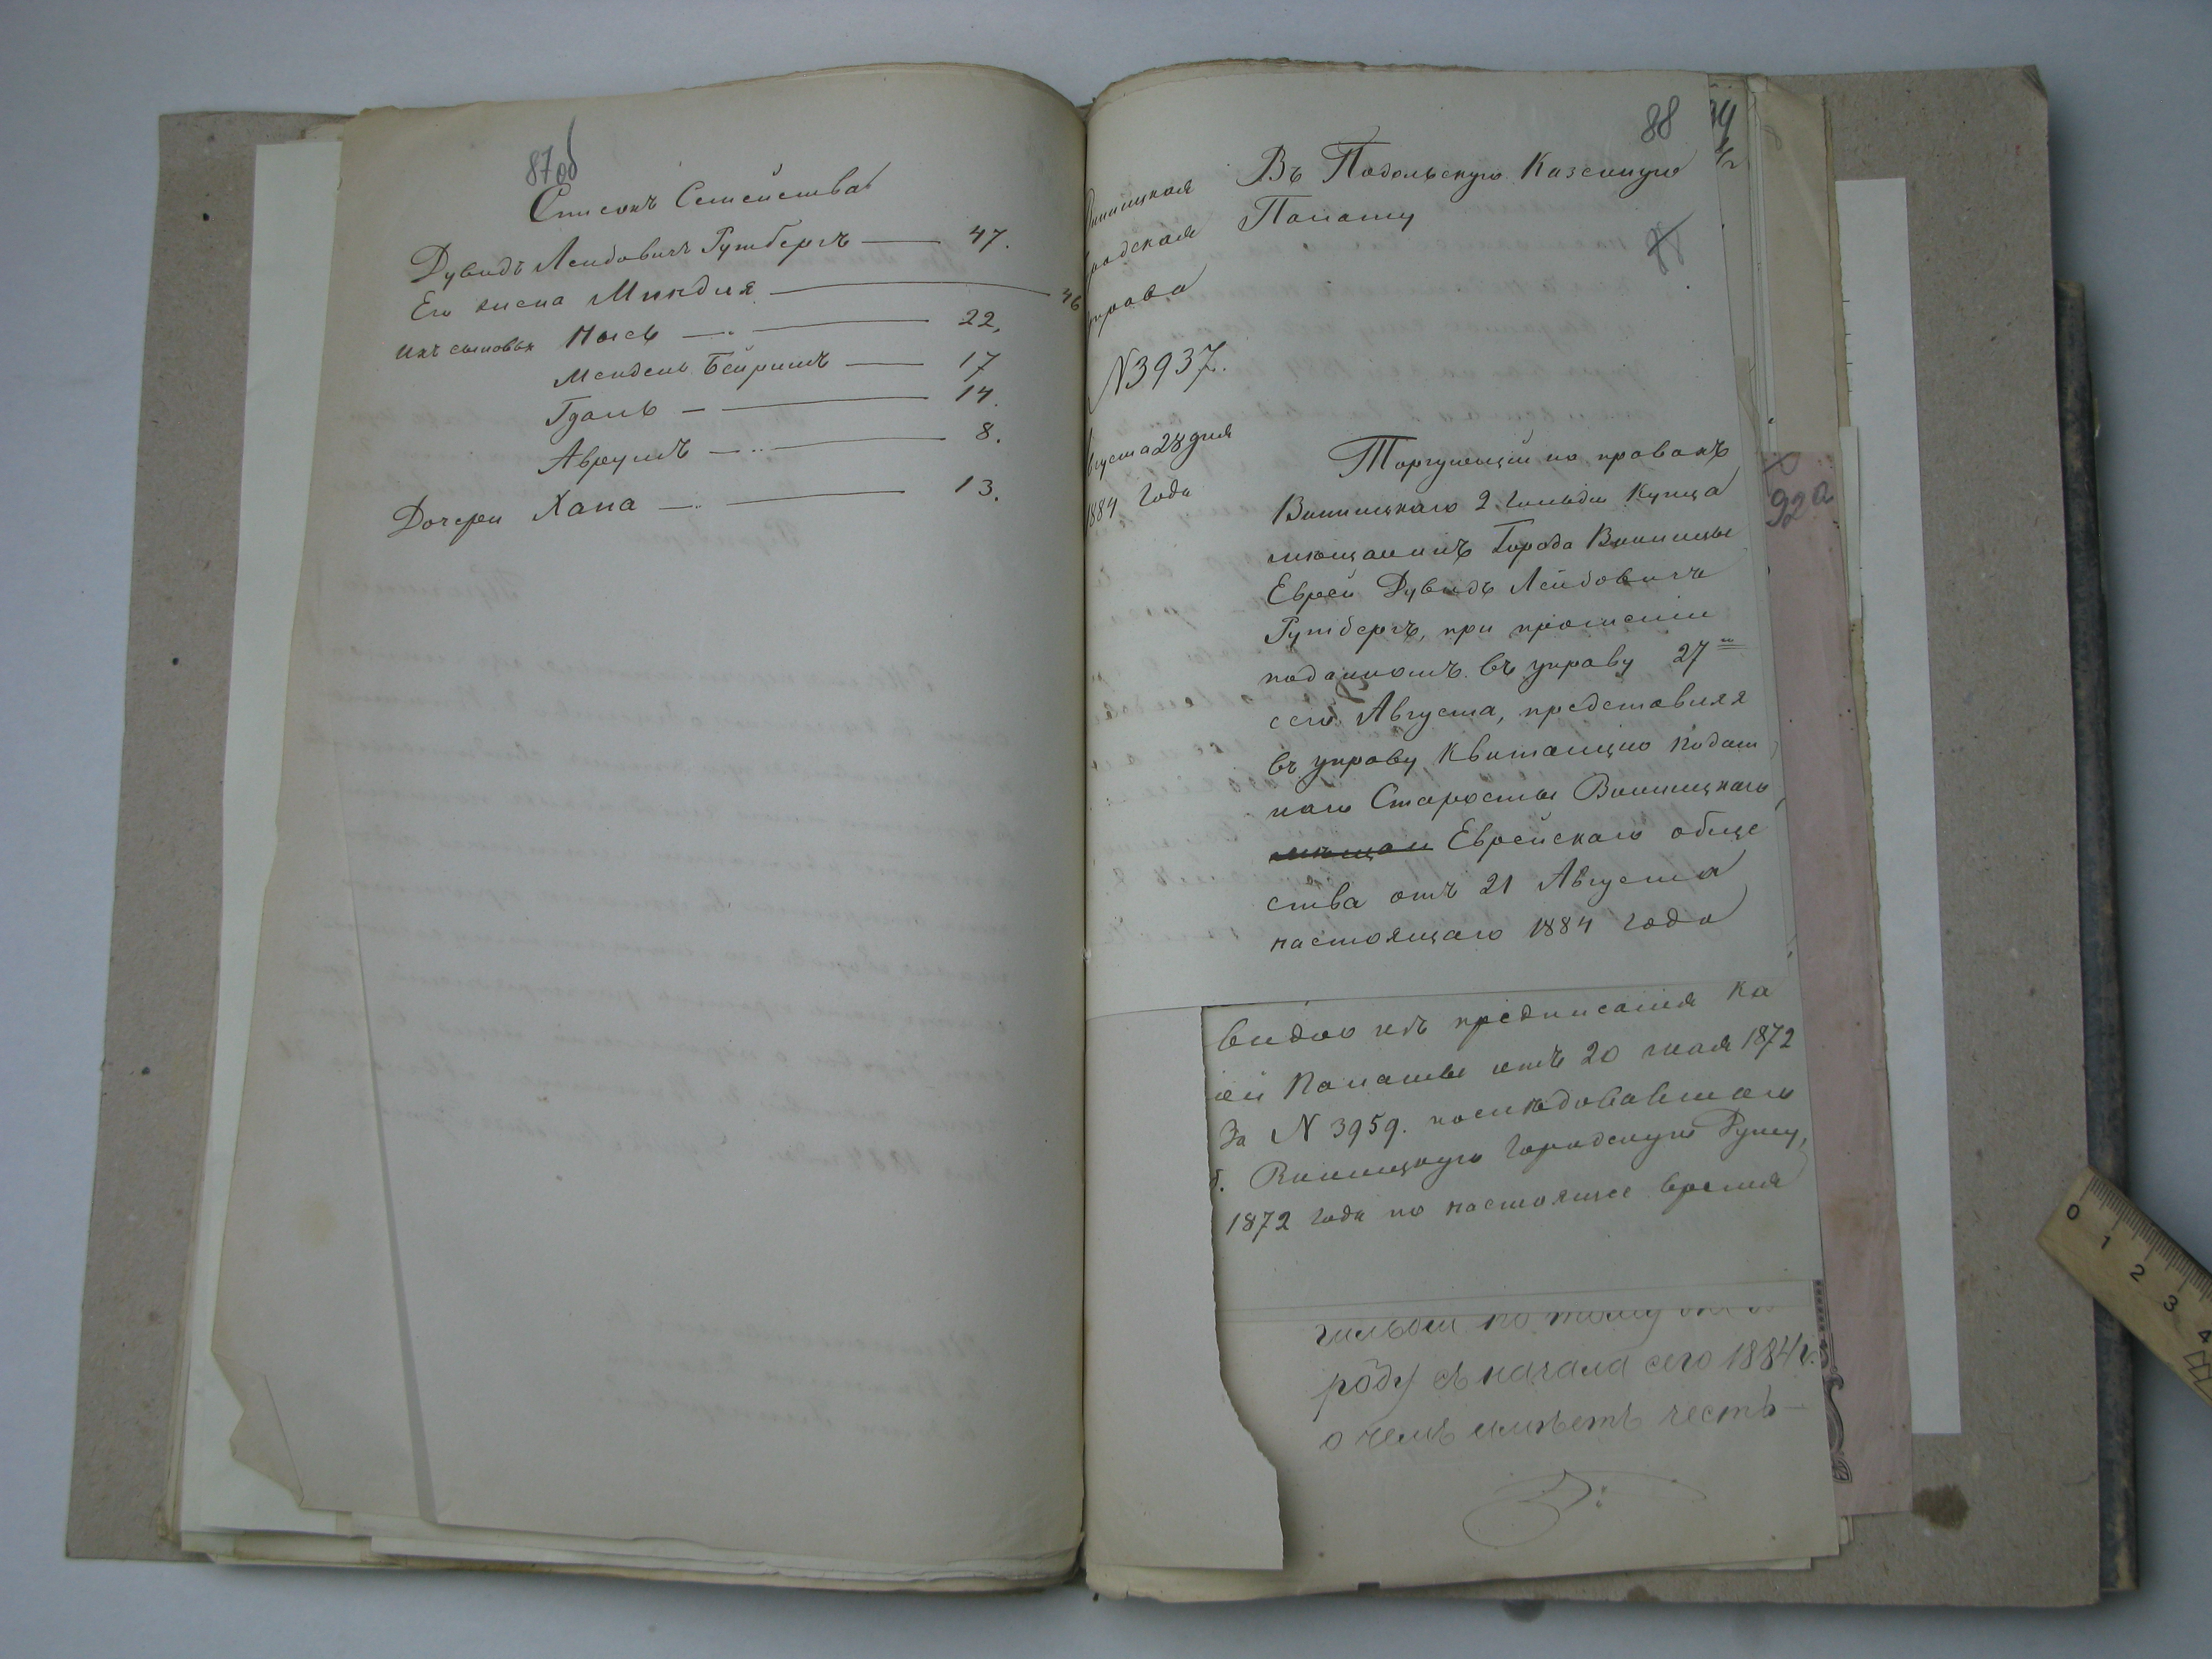 87об
Списокъ Семейства
Дувидъ Лейбовичъ Гутбергъ — 47.
Его жена Миндля — 46
Ихъ сыновья Мось — 22,
Мендель Бейришъ — 17
Гдаль — 14.
Аврумъ — 8.
Дочери Хана — 13.
88
Винницкая
Городская
Управа
№3937.
Августа 28 дня
1884 года
Въ Подольскую Казенную
Палату
Торгующій по правамъ
Винницкаго 2 гильдіи Купца
мѣщанинъ Города Винницы
Еврей Дувидъ Лейбовичъ
Гутбергъ, при прошеніи
поданномъ въ управу 27го
сего Августа, представляя
въ управу Квитанцію Подат
наго Старосты Винницкаго
мѣщан Еврейскаго обще
ства отъ 21 Августа
настоящаго 1884 года
видно изъ предписанія Ка
ой Палаты отъ 20 мая 1872
За № 3959. послѣдовавшаго
б. Винницкую Городскую Думу,
1872 года по настоящее время
роду съ начала сего 1884 г.
о чемъ имѣетъ честь
92а
0 1 2 3 4